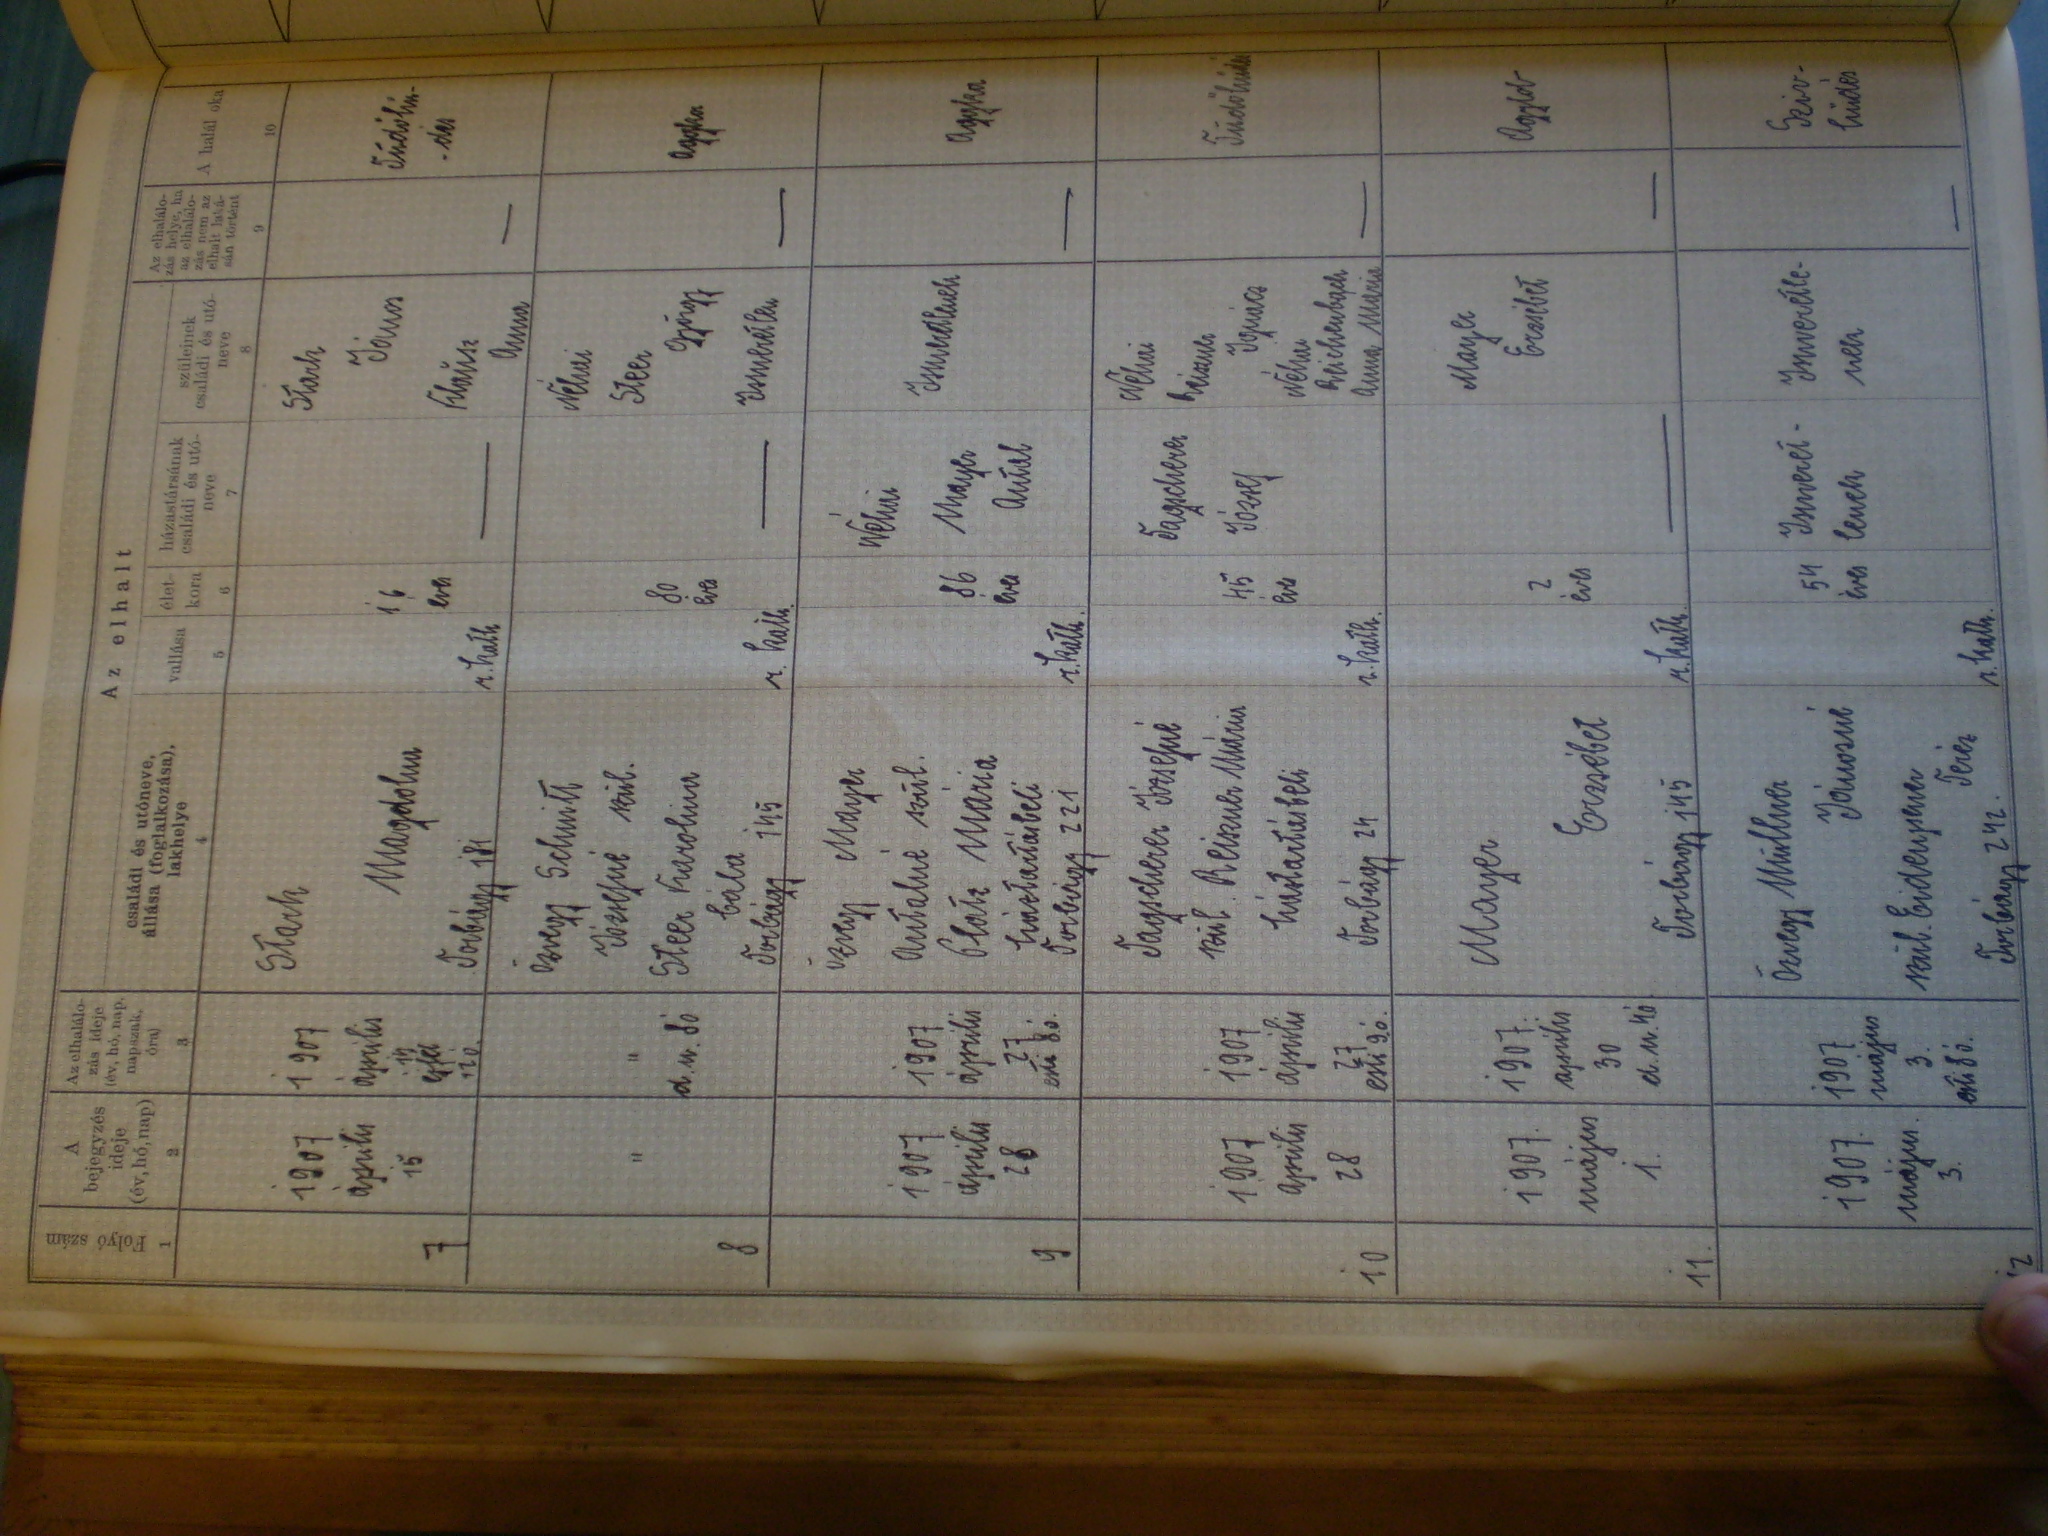 Az elhalt
Folyó szám
A
bejegyzés
ideje
(év, hó, nap)
Az elhalálo-
zás ideje
(év, hó, nap,
napszak,
óra)
családi és utóneve,
állása (foglalkozása),
lakhelye
vallása
élet-
kora
házastársának
családi és utó-
neve
szüleinek
családi és utó-
neve
Az elhalálo-
zás helye, ha
az elhalálo-
zás nem az
elhalt laká-
sán történt
A halál oka
1
2
3
4
5
6
7
8
9
10
7
1907
április
15
1907
április
14
éjjel
12 ó.
Stark
Magdolna
Torbágy 181
r. kath
16
éves
—
Stark
János
Anna
—
Tüdőlob-
8
"
"
d. u. 8 ó
özvegy Schmitt
Józsefné szül.
Steer Karolina
Torbágy 145
r. kath.
80
éves
—
Néhai
Steer
György
Ismeretlen
—
aggkor
9
1907
április
28
1907
április
27
esti 8 ó.
özvegy Mayer
Antalné szül.
Platz Mária
háztartásbeli
Torbágy 221
r. kath.
86
éves
Néhai
Mayer
Antal
Ismeretlenek
—
aggkor
10
1907
április
28
1907
április
27
esti 9 ó.
Tagscherer Józsefné
szül. Reiszner Mária
háztartásbeli
Torbágy 24
r. kath.
45
éves
Tagscherer
József
Néhai
Reiszner
Ignácz
Néhai
Reichenbach
Anna Mária
—
11.
1907.
május
1.
1907.
április
30
d. u. 4 ó
Mayer
Erzsébet
Torbágy 145
r. kath.
2
éves
—
Mayer
Erzsébet
—
12
1907.
május.
3.
1907
május
3.
esti 8 ó.
Özvegy Müllner
Jánosné
szül.
Teréz
Torbágy 242.
r. kath.
54
éves
Ismeret-
lenek
Ismeretle-
nek
—
Sziv-
hüdés